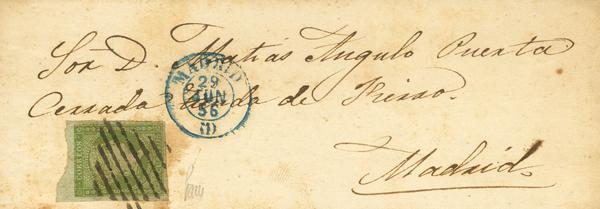 Sor D. Matias Angulo Puerta
Cerrada tienda de Fierro.
Madrid.
MADRID
29
JUN
56
(1)
CORREOS